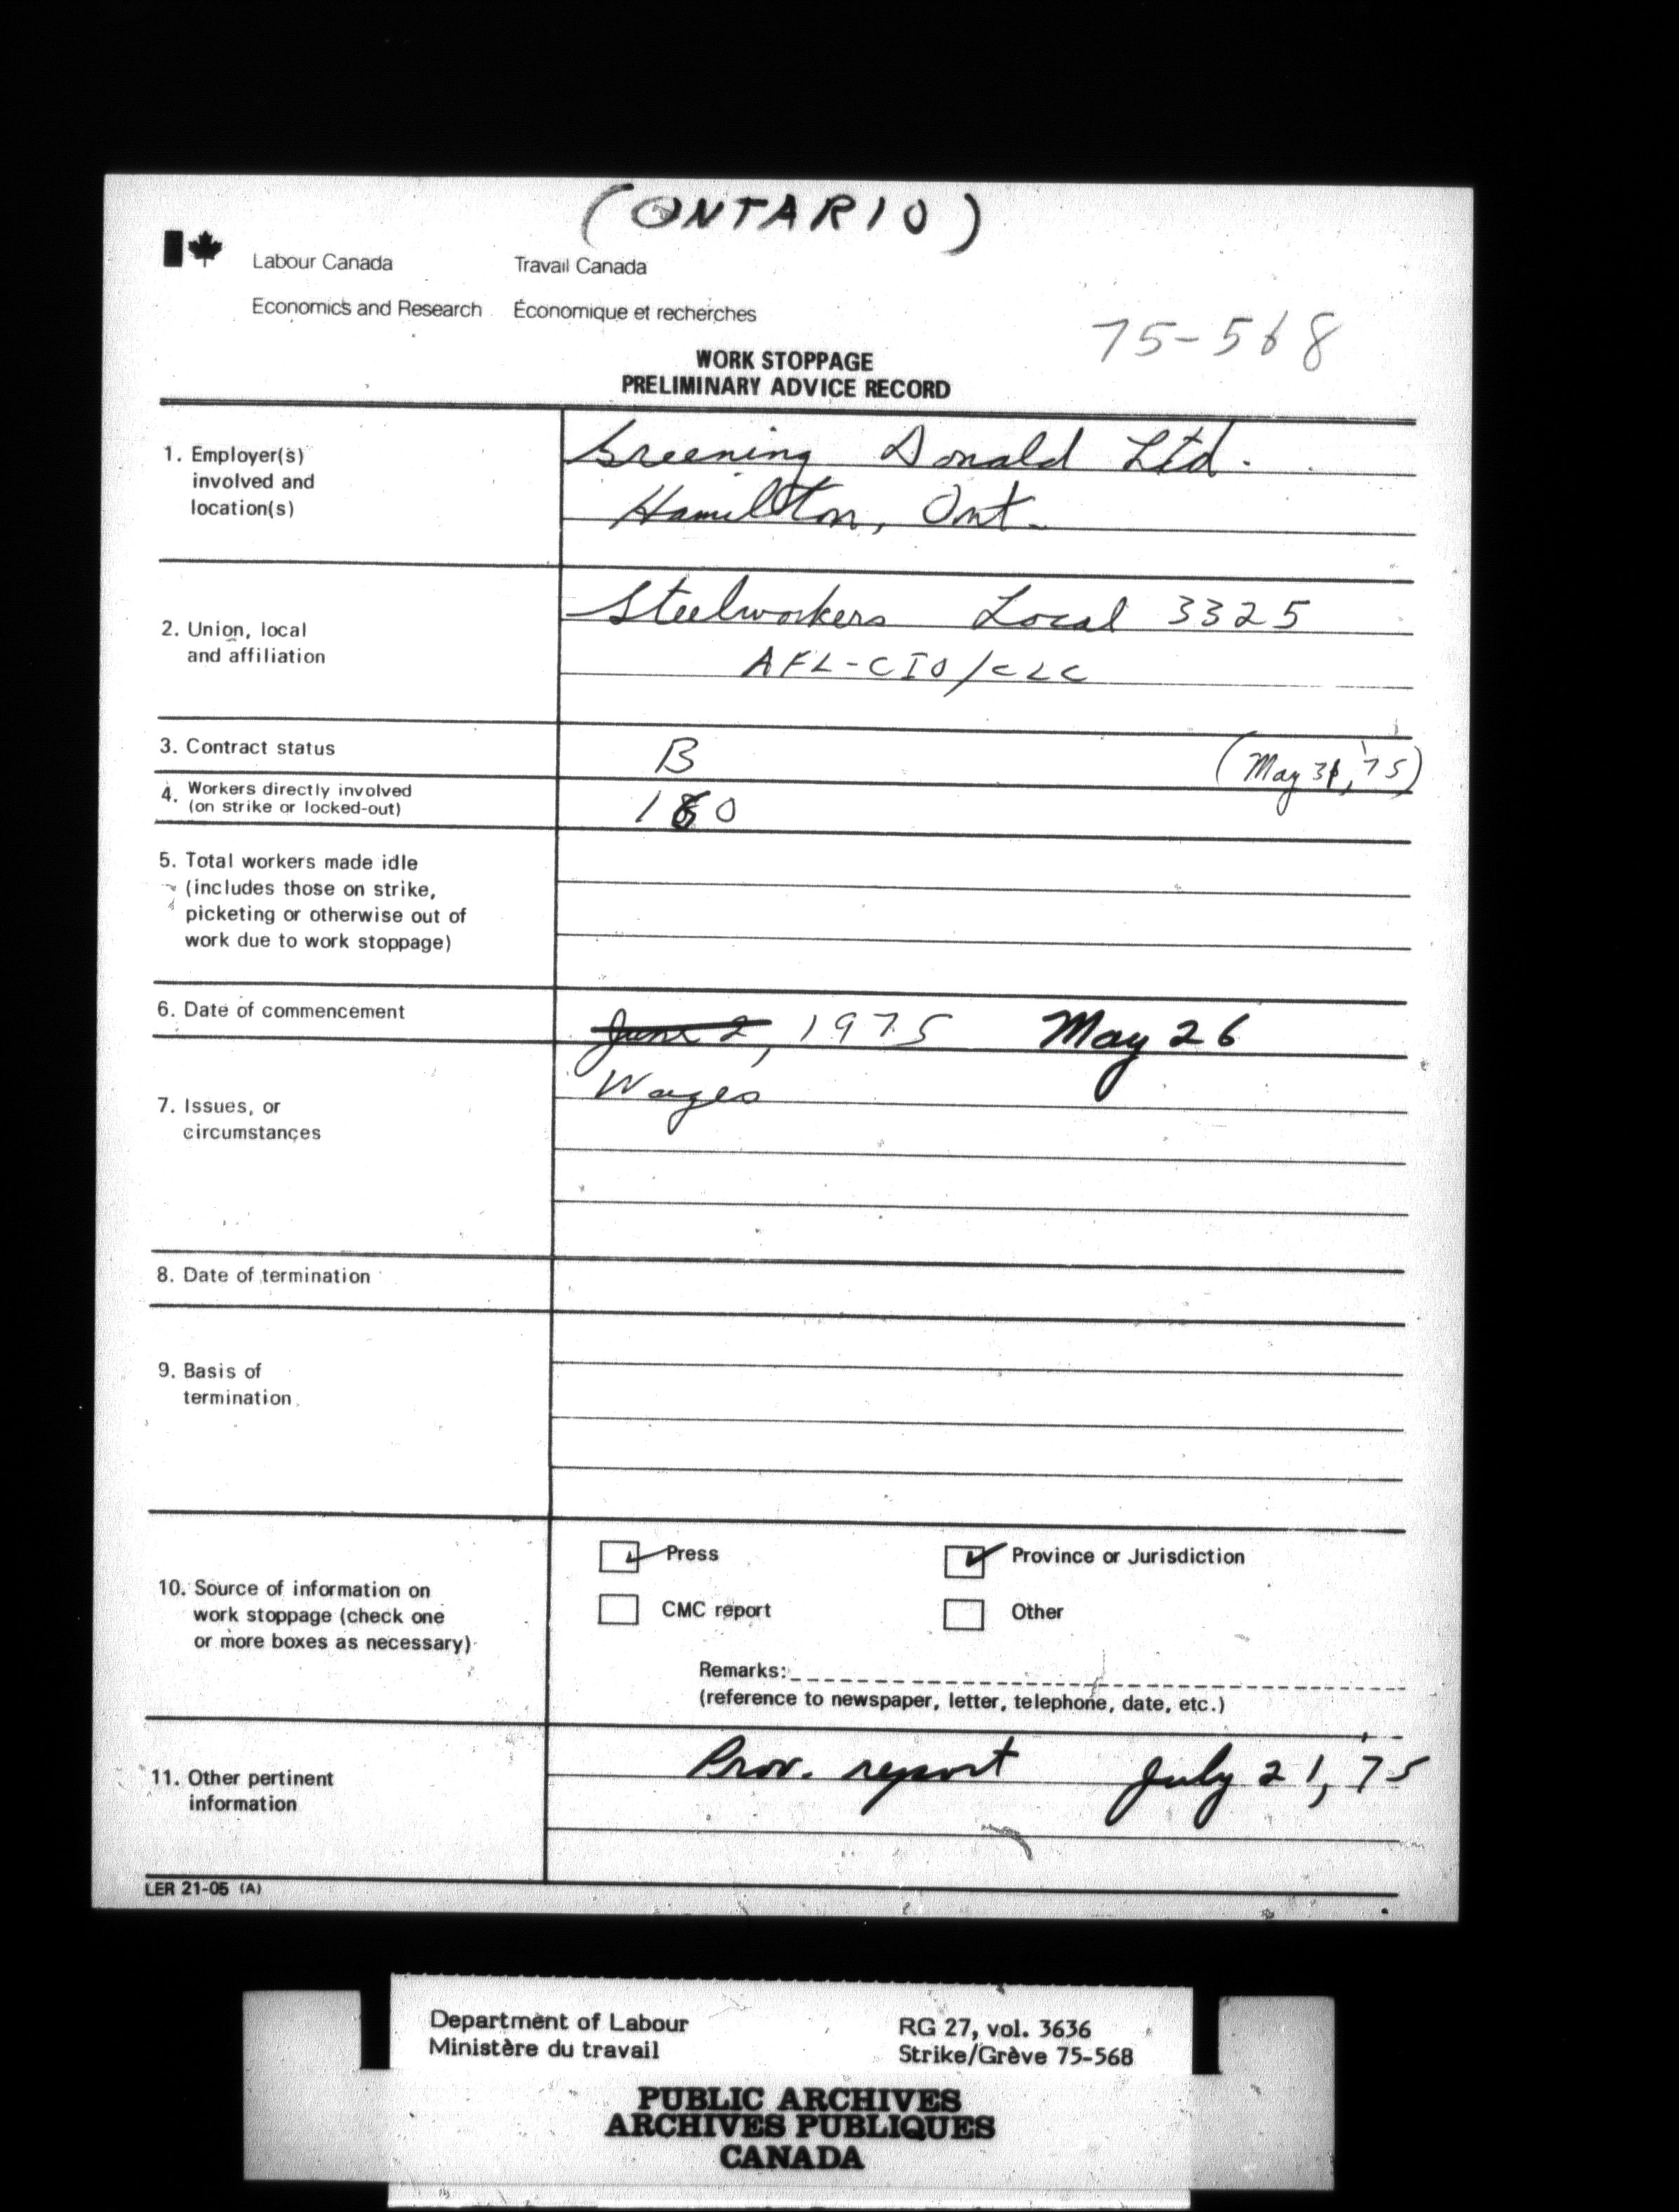 (ONTARIO)
Labour Canada Travail Canada
Economics and Research Économique et recherches
75-568
WORK STOPPAGE
PRELIMINARY ADVICE RECORD
1. Employer(s)
involved and
location(s)
Greening Donald Ltd.
Hamilton, Ont.
2. Union, local
and affiliation
Steelworkers Local 3325
AFL-CIO/CLC
3. Contract status
B (May 31, '75)
4. Workers directly involved
(on strike or locked-out)
5. Total workers made idle
(includes those on strike,
picketing or otherwise out of
work due to work stoppage)
6. Date of commencement
June 2, 1975 May 26
7. Issues, or
circumstances
Wages
8. Date of termination
9. Basis of
termination
10. Source of information on
work stoppage (check one
or more boxes as necessary)
Press Province or Jurisdiction
CMC report Other
Remarks:
(reference to newspaper, letter, telephone, date, etc.)
11. Other pertinent
information
Prov. report July 21, '75
LER 21-05 (A)
Department of Labour
Ministère du travail
RG 27, vol. 3636
Strike/Grève 75-568
PUBLIC ARCHIVES
ARCHIVES PUBLIQUES
CANADA